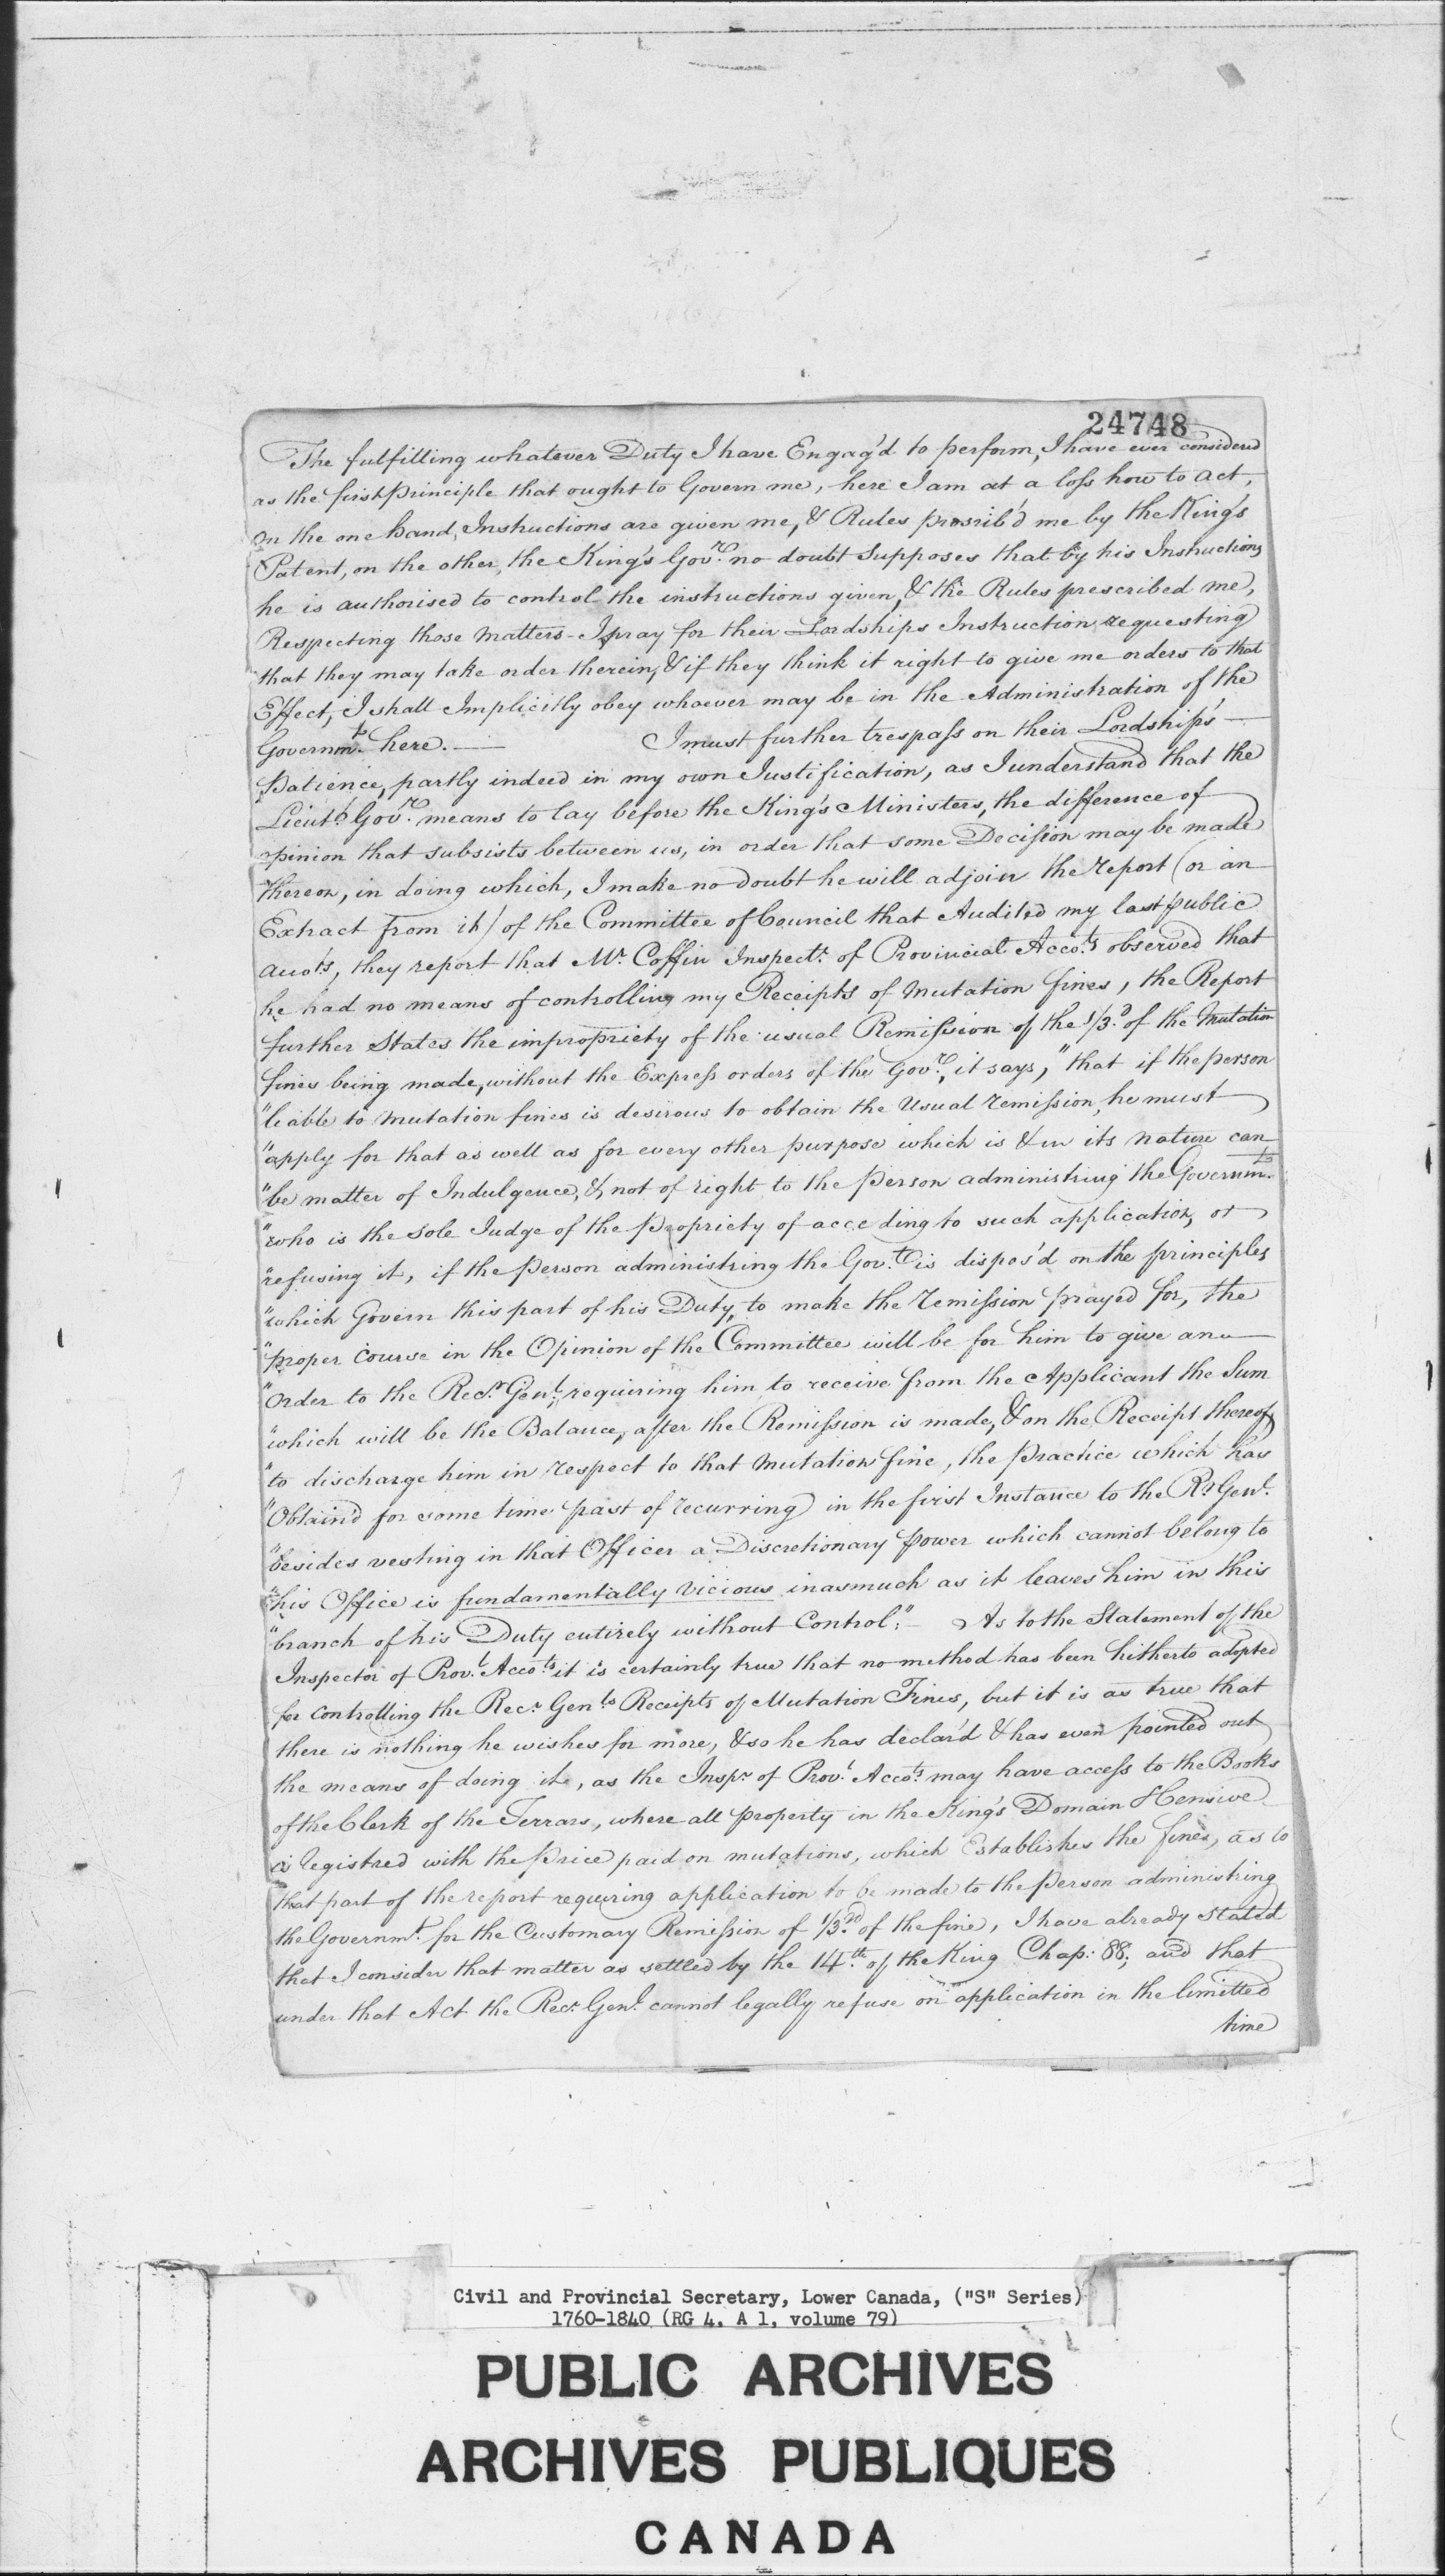 24748
The fulfilling whatever Duty I have Engag'd to perform, I have ever considered
as the first principle that ought to Govern me, here I am at a loss how to act,
on the one hand, Instructions are given me, & Rules presrib'd me by the King's
Patent, on the other, the King's Govr. no doubt Supposes that by his Instructions
he is authorised to control the instructions given, & the Rules prescribed me,
Respecting those matters - I pray for their Lordships Instruction requesting
that they may take order therein, & if they think it right to give me orders to that
Effect, I shall Implicitly obey whoever may be in the Administration of the
Governmt. here. — I must further trespass on their Lordship's —
Patience, partly indeed in my own Justification, as I understand that the
Lieut. Govr. means to lay before the King's Ministers, the difference of
opinion that subsists between us, in order that some Decission may be made
thereon, in doing which, I make no doubt he will adjoin the report (or an
Extract from it) of the Committee of Council that Audited my last public
Accots, they report that Mr. Coffin Inspectr. of Provincial Accots. observed that
he had no means of controlling my Receipts of mutation fines, the Report
further States the impropriety of the usual Remission of the 1/3d. of the Mutation
fines being made, without the Express orders of the Govr., it says, "that if the person
"leable to mutation fines is desirous to obtain the Usual remission, he must
"apply for that as well as for every other purpose which is & in its nature can
"be matter of Indulgence, & not of right to the person administring the Governmt.
"who is the sole Judge of the propriety of acceding to such application, or
"refusing it, if the person administring the Govt. is dispos'd on the principles
"which Govern this part of his Duty, to make the remission prayed for, the
"proper course in the Opinion of the Committee will be for him to give an —
"order to the Recr. Genl. requiring him to receive from the Applicant the Sum
"which will be the Balance, after the Remission is made, & on the Receipt thereof
"to discharge him in respect to that mutation fine, the practice which has
"Obtain'd for some time past of recurring in the first Instance to the Rr. Genl.
"besides vesting in that Officer a Discretionary power which cannot belong to
"his Office is fundamentally vicious inasmuch as it leaves him in this
"branch of his Duty entirely without Control." - As to the Statement of the
Inspector of Provl. Accots. it is certainly true that no method has been hitherto adopted
for controlling the Recr. Genls. Receipts of Mutation Fines, but it is as true that
there is nothing he wishes for more, & so he has declar'd & has even pointed out
the means of doing it, as the Inspr. of Provl. Accots. may have access to the Books
of the Clerk of the Terrars, where all property in the King's Domain & Censive
is registred with the price paid on mutations, which Establishes the fines, as to
that part of the report requiring application to be made to the person administring
the Governmt. for the Customary Remission of 1/3d. of the fine, I have already stated
that I consider that matter as settled by the 14th. of the King Chap: 88; and that
under that Act the Recr. Genl. cannot legally refuse on application in the limitted
time
Civil and Provincial Secretary, Lower Canada, ("S" Series)
1760-1840 (RG 4, A 1, volume 79)
PUBLIC ARCHIVES
ARCHIVES PUBLIQUES
CANADA